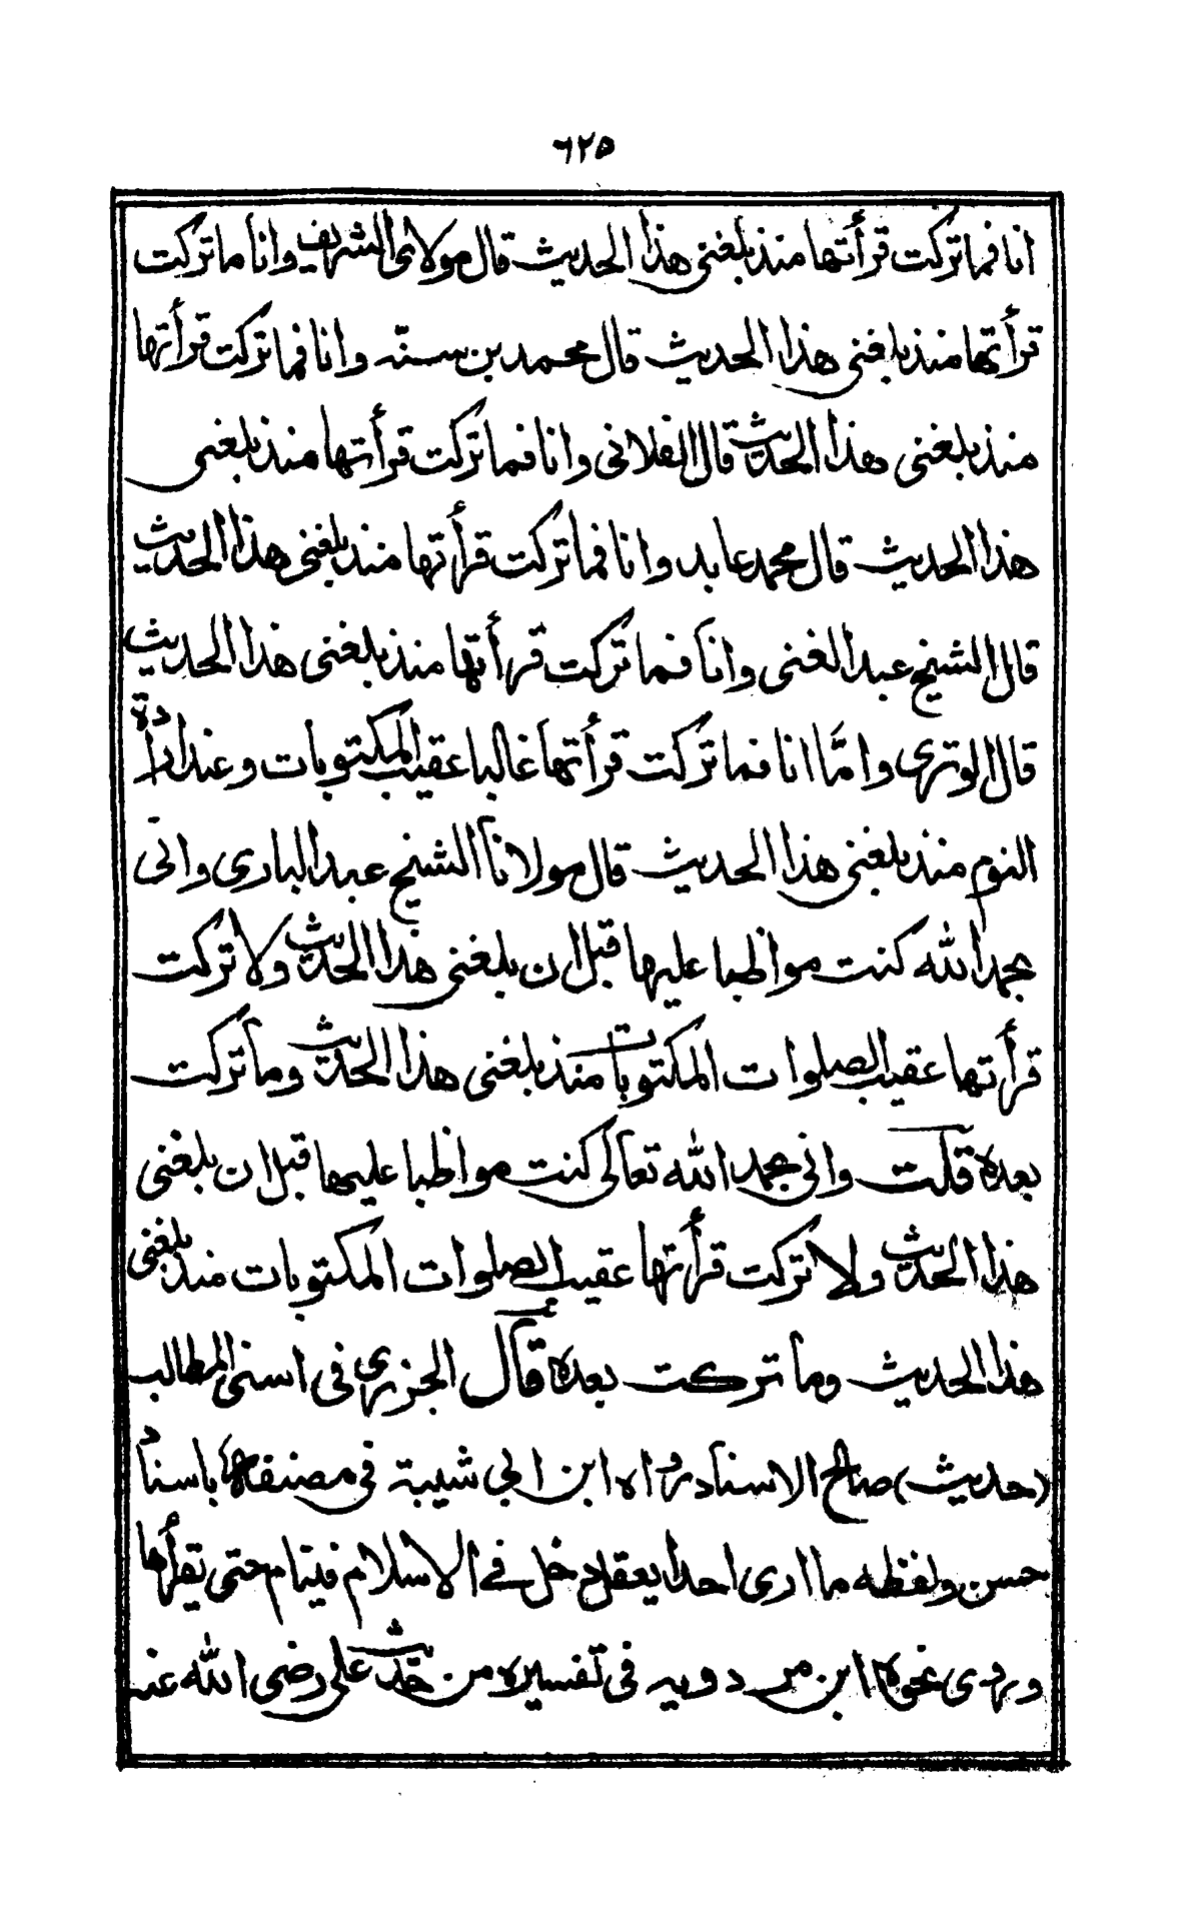 ٦٢٥
انا فما تركت قرأتها منذ بلغنى هذا الحديث قال مولاى الشريف وانا ما تركت
قرأتها منذ بلغنى هذا الحديث قال محمد بن سنّه وانا فما تركت قرأتها
منذ بلغنى هذا الحديث قال الفلانى وانا فما تركت قرأتها منذ بلغنى
هذا الحديث قال محمد عابد وانا فما تركت قرأتها منذ بلغنى هذا الحديث
قال الشيخ عبد الغنى وانا فما تركت قرأتها منذ بلغنى هذا الحديث
قال الوترى وامّا انا فما تركت قرأتها غالبا عقيب المكتوبات وعند ارادة
النوم منذ بلغنى هذا الحديث قال مولانا الشيخ عبد البارى وانّى
بحمد الله كنت مواظبا عليها قبل ان بلغنى هذا الحديث ولا تركت
قرأتها عقيب الصلوات المكتوبات منذ بلغنى هذا الحديث وما تركت
بعده قلت وانى بحمد الله تعالى كنت مواظبا عليها قبل ان بلغنى
هذا الحديث ولا تركت قرأتها عقيب الصلوات المكتوبات منذ بلغنى
هذا الحديث وما تركت بعده قال الجزرى فى اسنى المطالب
(حديث) صالح الاسناد رواه ابن ابى شيبة فى مصنفه باسناد
حسن ولفظه ما ارى احدا يعقل دخل فے الاسلام فينام حتى يقرأها
وروى نحوه ابن مردويه فى تفسيره من حديث على رضى الله عنه